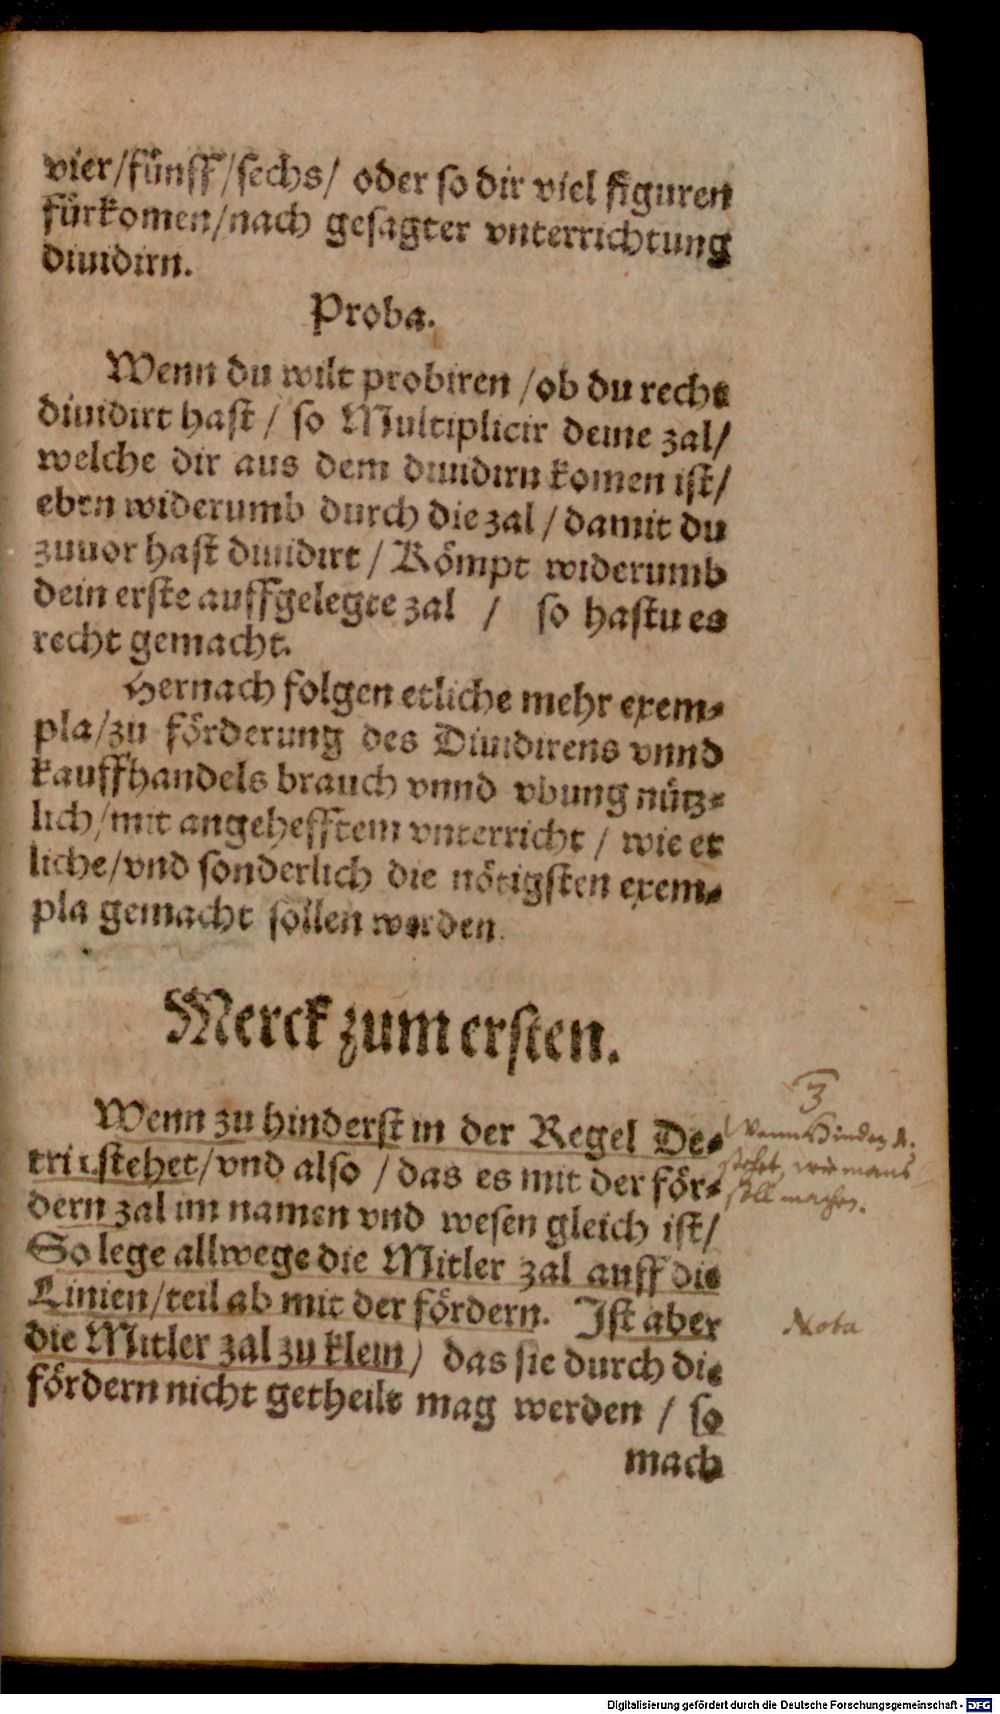 vier/fünff/sechs/ oder so dir viel figuren
fürkomen/nach gesagter vnterrichtung
diuidirn.
Proba.
Wenn du wilt probiren /ob du recht
diuidirt hast / so Multiplicir deine zal/
welche dir aus dem diuidirn komen ist/
eben widerumb durch die zal / damit du
zuuor hast diuidirt / Kömpt widerumb
dein erste auffgelegte zal / so hastu es
recht gemacht.
Hernach folgen etliche mehr exem-
pla/zu förderung des Diuidirens vnnd
kauffhandels brauch vnnd vbung nütz-
lich/mit angehefftem vnterricht / wie et
liche/vnd sonderlich die nötigsten exem-
pla gemacht sollen werden.
Merck zum ersten.
Wenn zu hinderst in der Regel De-
tri 1.stehet/vnd also / das es mit der för-
dern zal im namen vnd wesen gleich ist/
So lege allwege die Mitler zal auff die
Linien/teil ab mit der fördern. Ist aber
die Mitler zal zu klein/ das sie durch die
fördern nicht getheilt mag werden / so
mach
3
Wenn Hinden 1.
stehet, wie mans
soll machen.
Nota
Digitalisierung gefördert durch die Deutsche Forschungsgemeinschaft - DFG